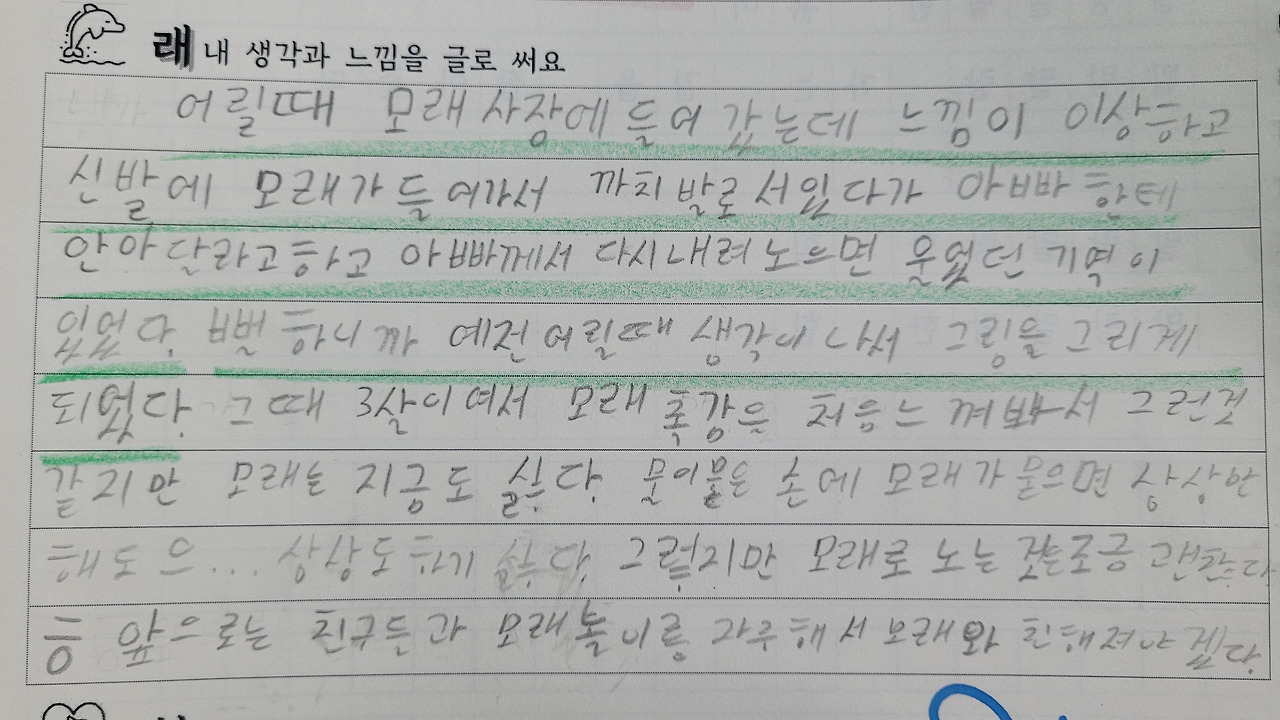 래 내 생각과 느낌을 글로 써요
어릴때 모래사장에 들어 갔는데 느낌이 이상하고
신발에 모래가 들어가서 까치발로 서있다가 아빠한테
안아달라고하고 아빠께서 다시내려노으면 울었던 기억이
있었다. 뻘하니까 예전어릴때 생각이 나서 그림을 그리게
되었다. 그때 3살이여서 모래 촉감을 처음느껴봐서 그런것
같지만 모래는 지금도 싫다. 물이묻은 손에 모래가 물으면 상상만
해도 으... 상상도하기 싫다. 그렇지만 모래로 노는 것은조금 괜찮다
음 앞으로는 친구들과 모래놀이를 자주해서 모래와 친해져야겠다.